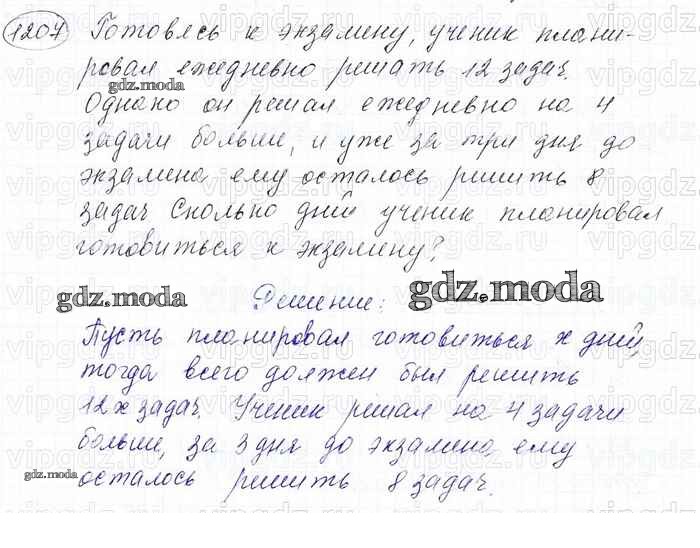 1207 Готовясь к экзамену, ученик плани-
ровал ежедневно решать 12 задач.
gdz.moda
Однако он решал ежедневно на 4
задачи больше, и уже за три дня до
экзамена ему осталось решить 8
задач Сколько дней ученик планировал
готовиться к экзамену?
gdz.moda Решение: gdz.moda
Пусть планировал готовиться x дней,
тогда всего должен был решить
12x задач. Ученик решал на 4 задачи
больше, за 3 дня до экзамена, ему
gdz.moda осталось решить 8 задач.